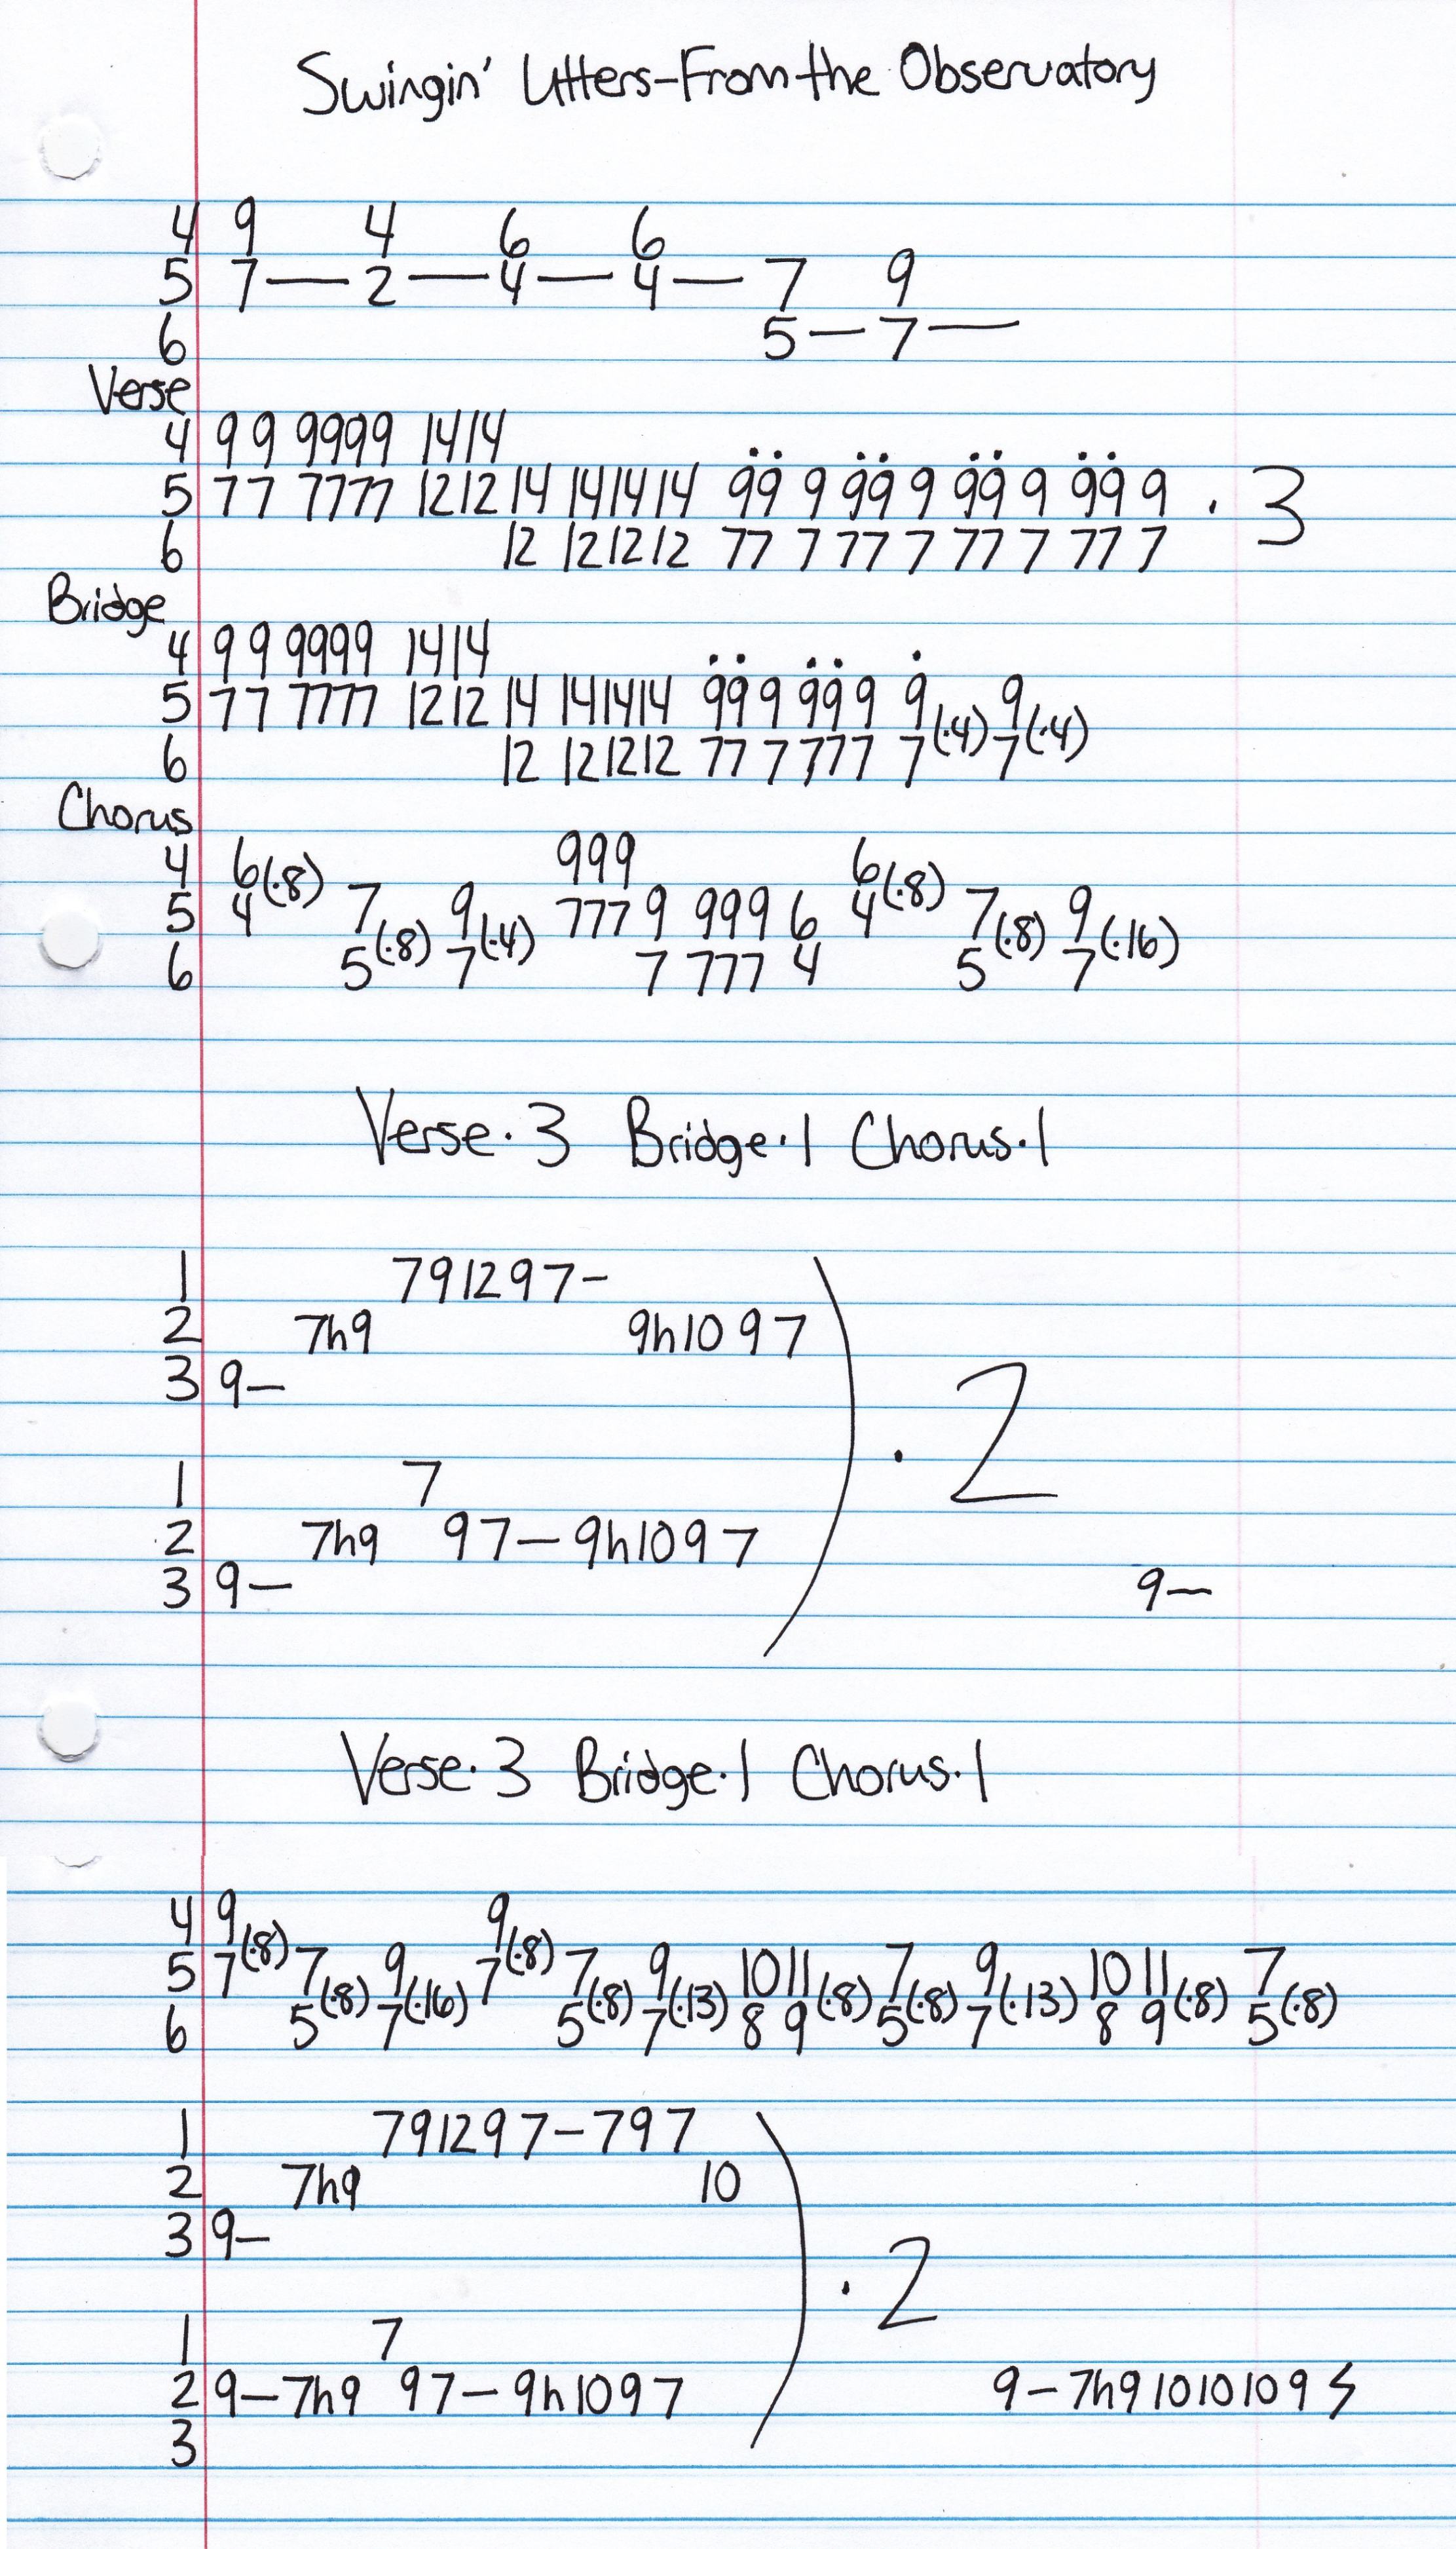 Swingin' Utters-From the Observatory
4 9 4 6 6
5 7 — 2 — 4 — 4 — 7 9
6 5 — 7 —
Verse
4 9 9 9999 14 14
5 77 7777 12 12 14 14 14 14 99 9 99 9 99 9 99 9 · 3
6 12 12 12 12 77 7 77 7 77 7 77 7
Bridge
4 9 9 9999 14 14
5 77 7777 12 12 14 14 14 14 99 9 99 9 9 (·4) 9 (·4)
6 12 12 12 12 77 7 777 7 7
Chorus
4 6 (·8) 999 6 (·8)
5 4 7 9 777 9 999 6 4 7 9
6 5 (·8) 7 (·4) 7 777 4 5 (·8) 7 (·16)
Verse·3 Bridge·1 Chorus·1
1 7 9 12 9 7 –
2 7h9 9h10 9 7
3 9 –
· 2
1 7
2 7h9 9 7 – 9h10 9 7
3 9 – 9 –
Verse·3 Bridge·1 Chorus·1
4 9 (·8) 9 (·8)
5 7 7 9 7 7 9 10 11 7 9 10 11 7
6 5 (·8) 7 (·16) 5 (·8) 7 (·13) 8 9 (·8) 5 (·8) 7 (·13) 8 9 (·8) 5 (·8)
1 7 9 12 9 7 – 7 9 7
2 7h9 10
3 9 –
· 2
1 7
2 9 – 7h9 9 7 – 9h10 9 7 9 – 7h9 10 10 10 9
3